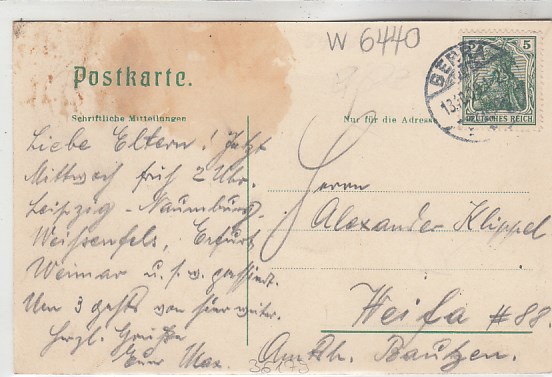 W 6440
Postkarte.
Schriftliche Mitteilungen
Nur für die Adresse
5
DEUTSCHES REICH
BERLIN
Liebe Eltern! Jetzt
Mittwoch früh 2 Uhr.
Leipzig - Naumburg,
Weissenfels, Erfurt
Weimar u. s. w. passiert.
Um 3 gehts von hier weiter.
Hrzl. Grüße
Euer Max.
Herrn
Alexander Klippel
Weifa # 88.
Bautzen.